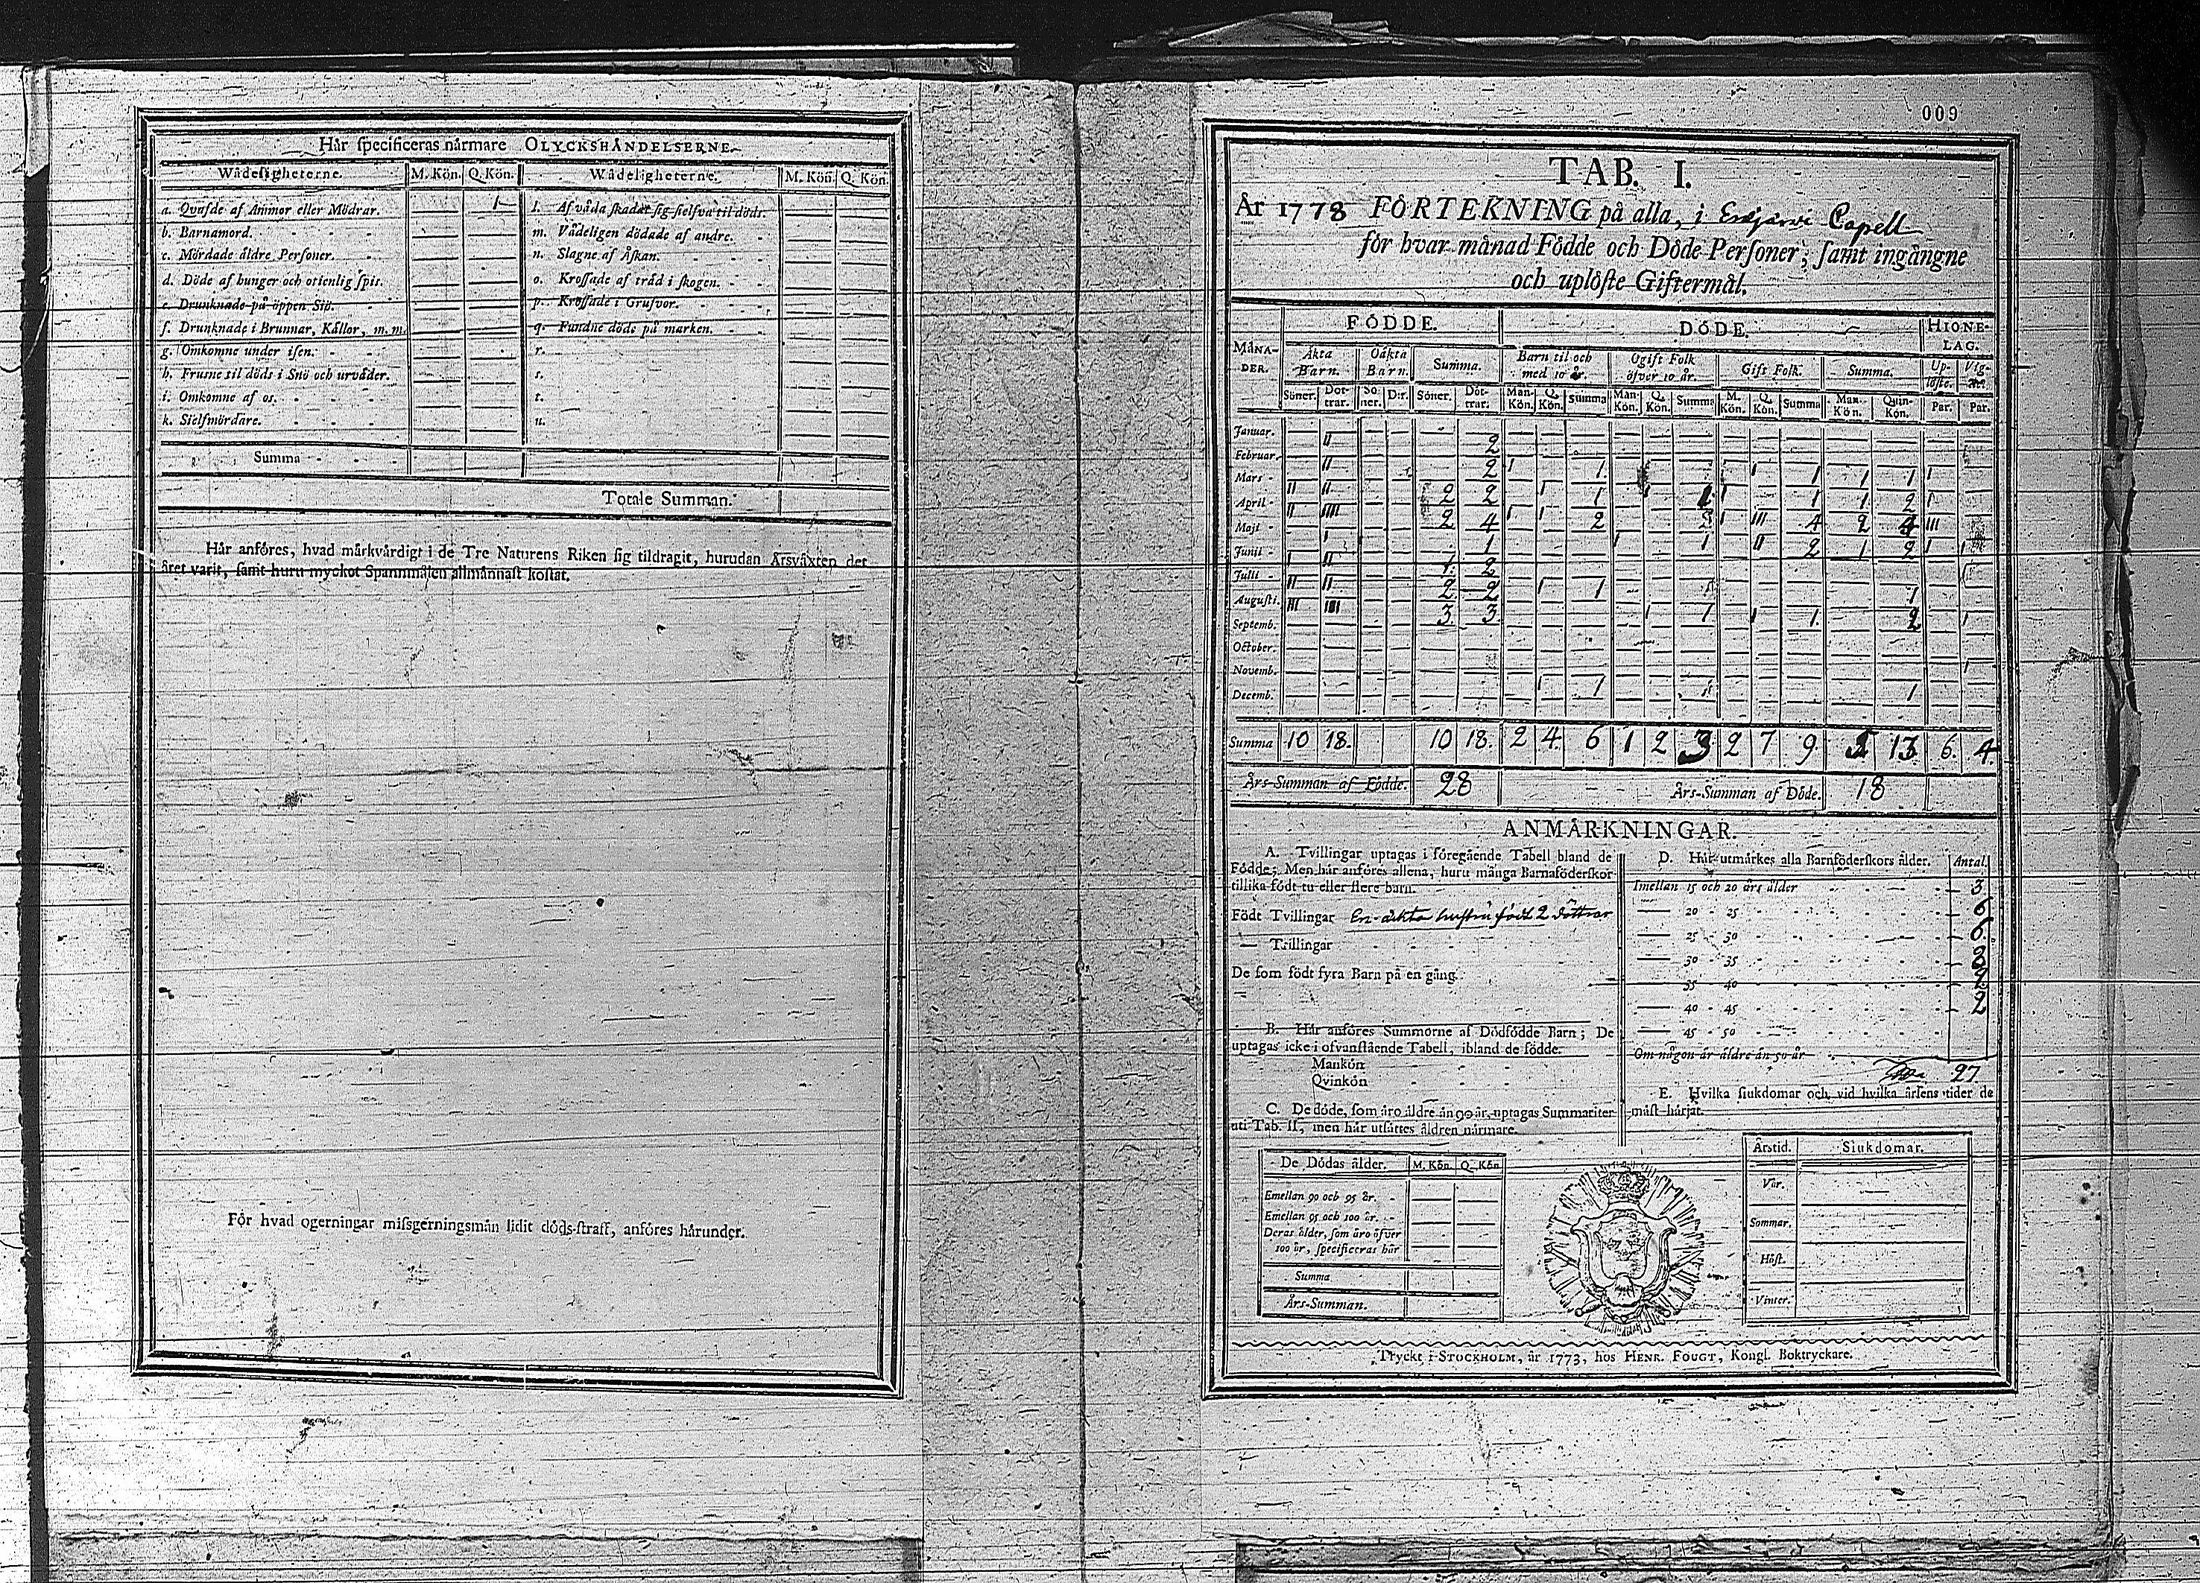 Hår specificeras nårmare OLYCKSHÅNDELSERNE.
Wådeligheterne. M. Kön. Q. Kön. Wådeligheterne. M. Kön. Q. Kön.
a. Qvafde af Ammor eller Mödrar. 1 l. Af våda skadat sig sielfva til döds.
b. Barnamord. m. Vådeligen dödade af andre.
c. Mördade åldre Personer. n. Slagne af Åskan.
d. Döde af hunger och otienlig spis. o. Krossade af tråd i skogen.
e. Drunknade på öppen Siö. p. Krossade i Grufvor.
f. Drunknade i Brunnar, Kållor, m. m. q. Fundne döde på marken.
g. Omkomne under isen. r.
h. Frusne til döds i Snö och urvåder. s.
i. Omkomne af os. t.
k. Sielfmördare. u.
Summa
Totale Summan.
Hår anföres, hvad mårkvårdigt i de Tre Naturens Riken sig tildragit, hurudan Årsvåxten det
året varit, samt huru myckot Spannmålen allmånnast kostat.
För hvad ogerningar missgerningsmån lidit döds-straff, anföres hårunder.
009
TAB. I.
År 1778 FÖRTEKNING på alla, i Capell
för hvar månad Födde och Döde Personer; samt ingångne
och uplöste Giftermål.
FÖDDE. DÖDE. HIONE-
LAG.
MÅNA-
DER. Åkta
Barn. Oåkta
Barn. Summa. Barn til och
med 10 år. Ogift Folk
öfver 10 år. Gift Folk. Summa. Up-
löste. Vig-
Söner. Döt-
trar. Sö-
ner. D:r. Söner. Döt-
trar. Man-
Kön. Q.
Kön. Summa Man-
Kön. Q.
Kön. Summa M.
Kön. Q.
Kön. Summa Man-
Kön. Quin-
Kön. Par. Par.
Januar. II 2
Februar. II 2 1 1 1 1 1 1
Mars II II 2 2 1 1 1 1 1 2
April II IIII 2 4 1 1 2 III 4 2 4 III
Maji 1 1 1 1 II 2 1 2
Junii 1 II 1 2
Julii II II 2 2 1 1 1
Augusti. III III 3 3 1 1 1 1 2
Septemb.
October.
Novemb. 1 1
Decemb.
Summa 10 18. 10 18. 2 4. 6 1 2 3 2 7 9 5 13 6. 4.
Års-Summan af Födde. 28 Års-Summan af Döde. 18
ANMÅRKNINGAR.
A. Tvillingar uptagas i föregående Tabell bland de
Födde; Men hår anföres allena, huru många Barnaföderskor
tillika födt tu eller flere barn.
Födt Tvillingar En äkta hustru födt 2 döttrar
— Trillingar
De som födt fyra Barn på en gång.
B. Hår anföres Summorne af Dödfödde Barn; De
uptagas icke i ofvanstående Tabell, ibland de födde.
Mankön
Qvinkön
C. De döde, som åro åldre ån 90 år, uptagas Summariter
uti Tab. II, men hår utsåttes åldren nårmare.
De Dödas ålder. M. Kön. Q. Kön
Emellan 90 och 95 år.
Emellan 95 och 100 år.
Deras ålder, som åro öfver
100 år, specificeras hår
Summa
Års-Summan.
D. Hår utmårkes alla Barnföderskors ålder. Antal.
Imellan 15 och 20 års ålder 3
— 20 - 25 6
— 25 - 30 6
— 30 - 35 8
— 35 - 40 2
— 40 - 45 2
— 45 - 50
Om någon är åldre ån 50 år
27
E. Hvilka siukdomar och vid hvilka årsens tider de
måst hårjat.
Årstid. Siukdomar.
Vår.
Sommar.
Höst.
Vinter.
Tryckt i STOCKHOLM, år 1773, hos HENR. FOUGT, Kongl. Boktryckare.